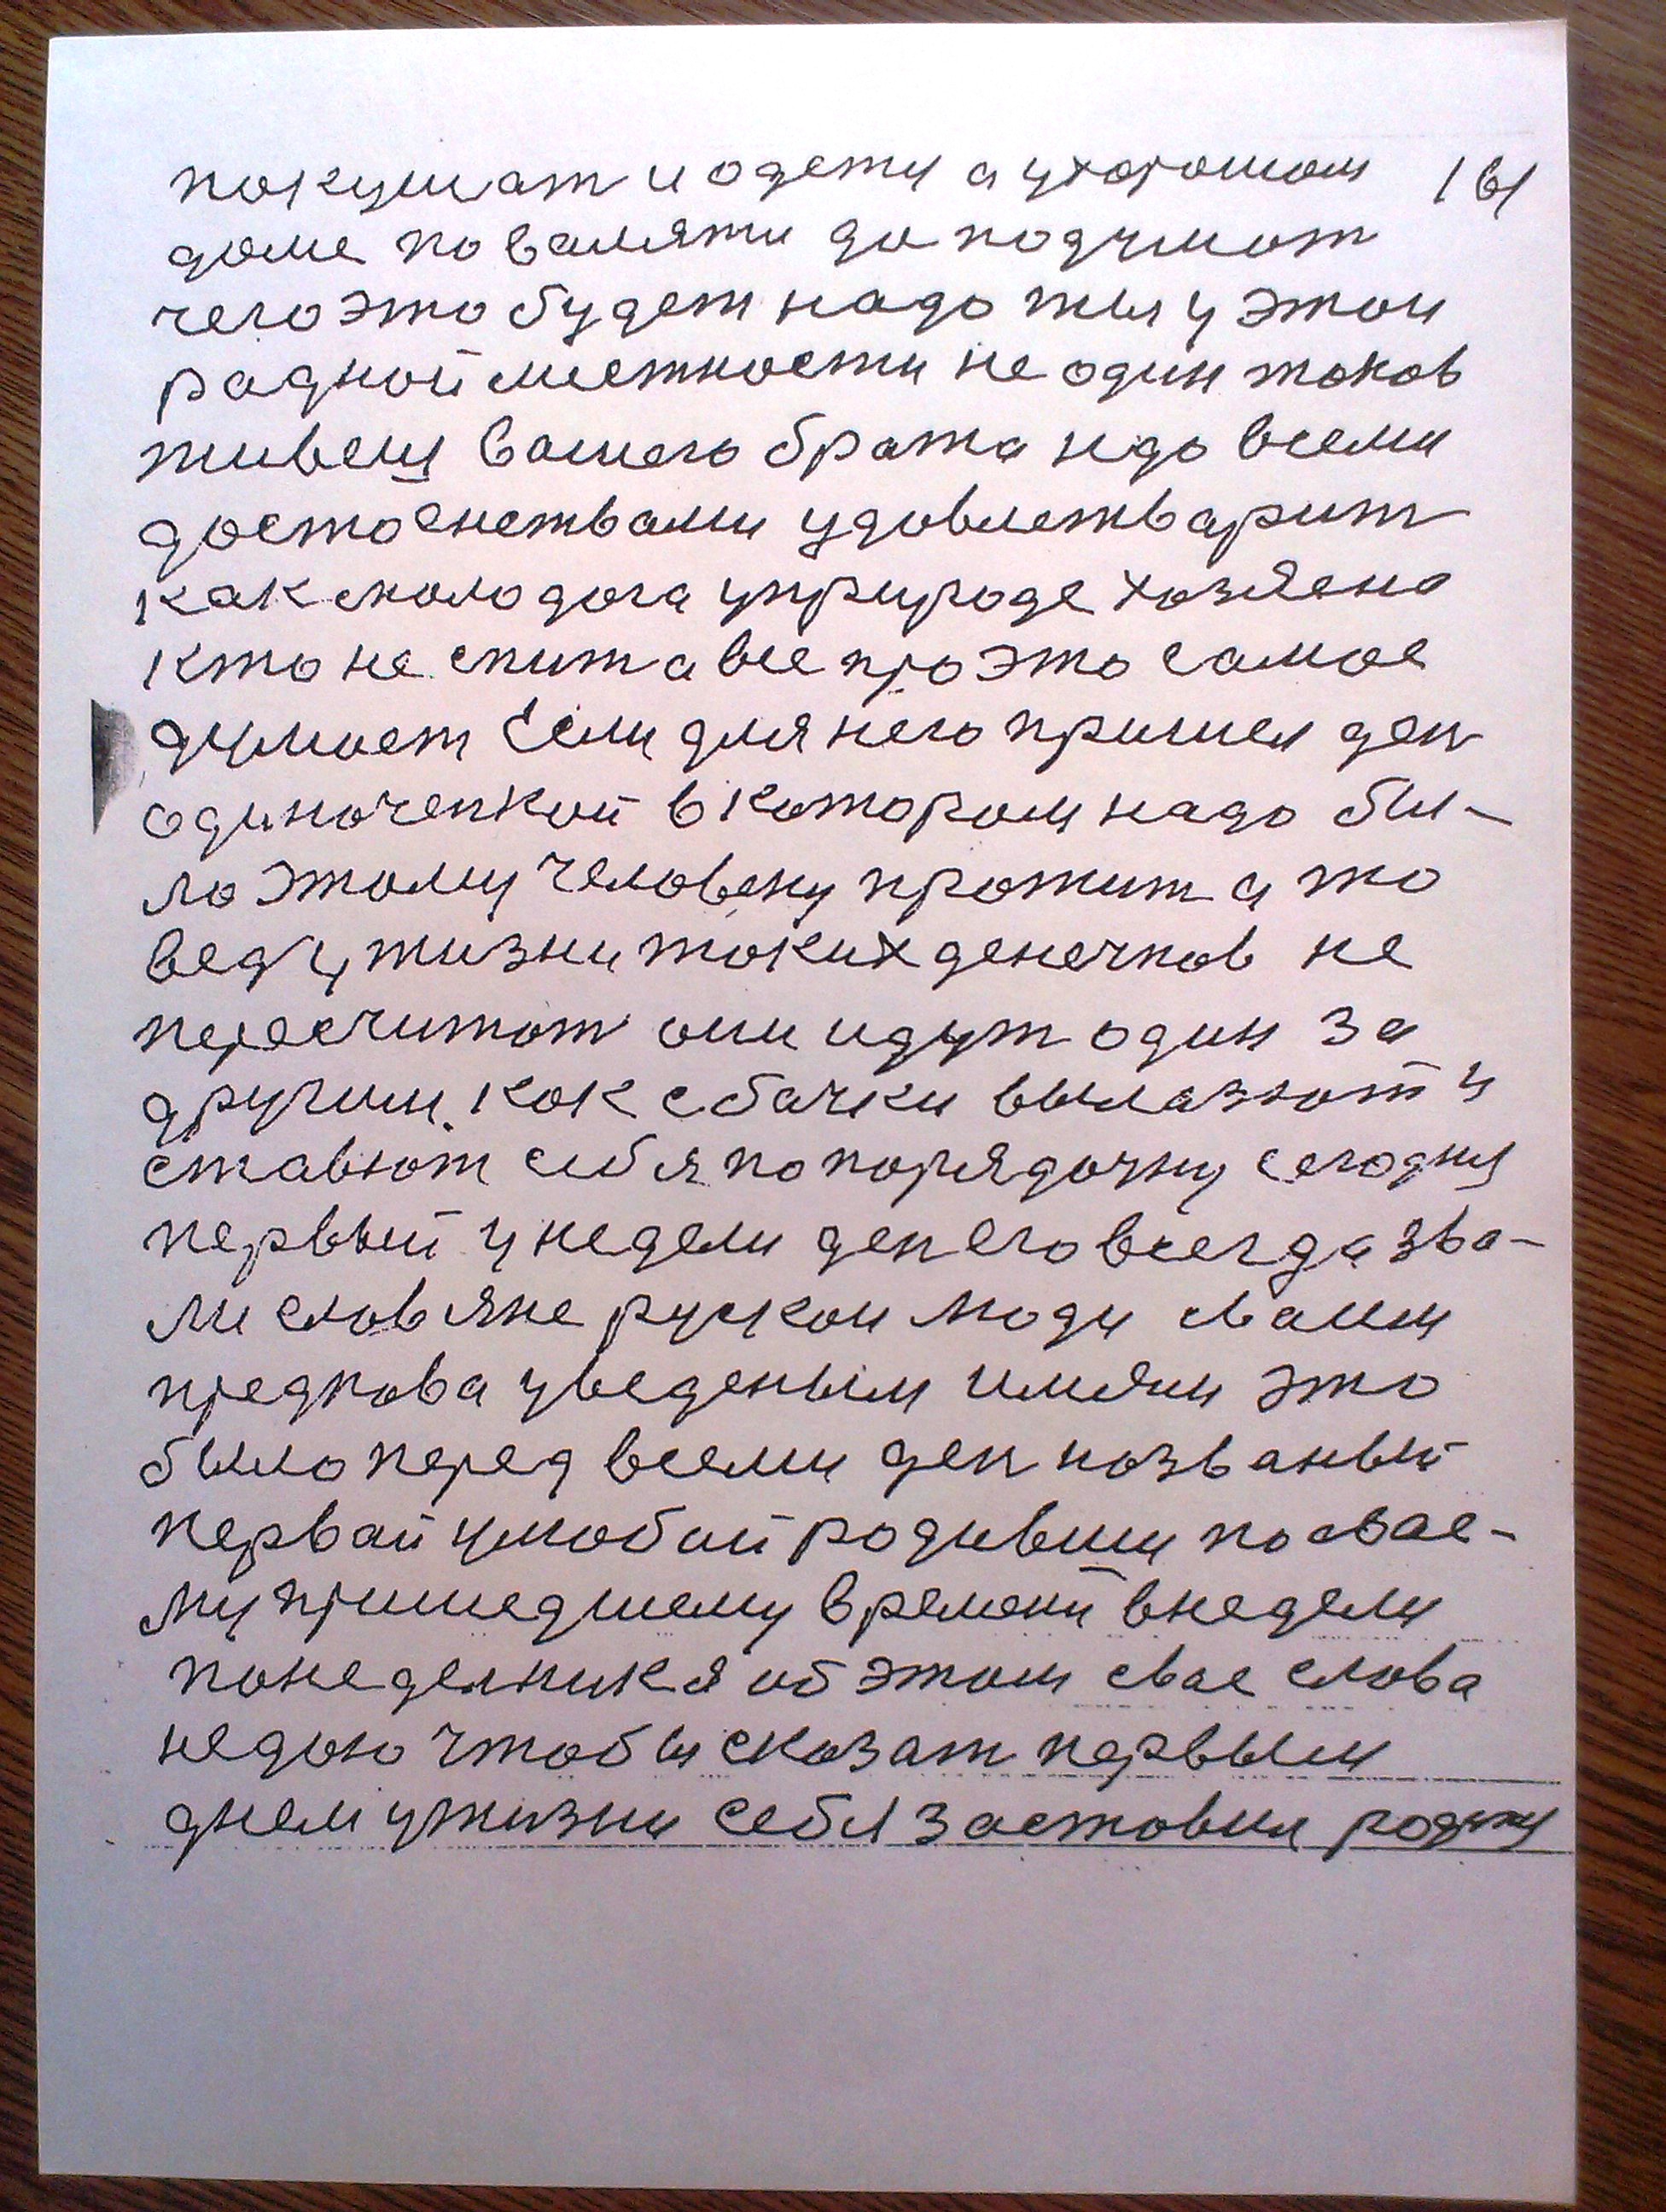 покушат и одети а ухорошом 161
доме поваляти да подумат
чего это будет надо ты у этои
радной местности не один таков
живеш вашего брата надо всеми
достоенствами удовлетварит
как молодога уприроде хозяена
кто не спит а все про это самое
думает Если для него пришел ден
одиночепкой в котором надо бы-
ло этому человеку прожит а то
вед у жизни таких денечков не
пересчитат они идут один за
другим как с бачки вылазют и
ставют себя по порядочку сегодня
первый у недели ден его всегда зва-
ли словяне рускои люди сваим
предкова уведеным имями это
было перед всеми ден названый
первай улюбой родивши по свае-
му пришедшему времени внедели
понеделника я об этом свае слова
недаю чтобы сказат первым
днем ужизни себя заставил родити